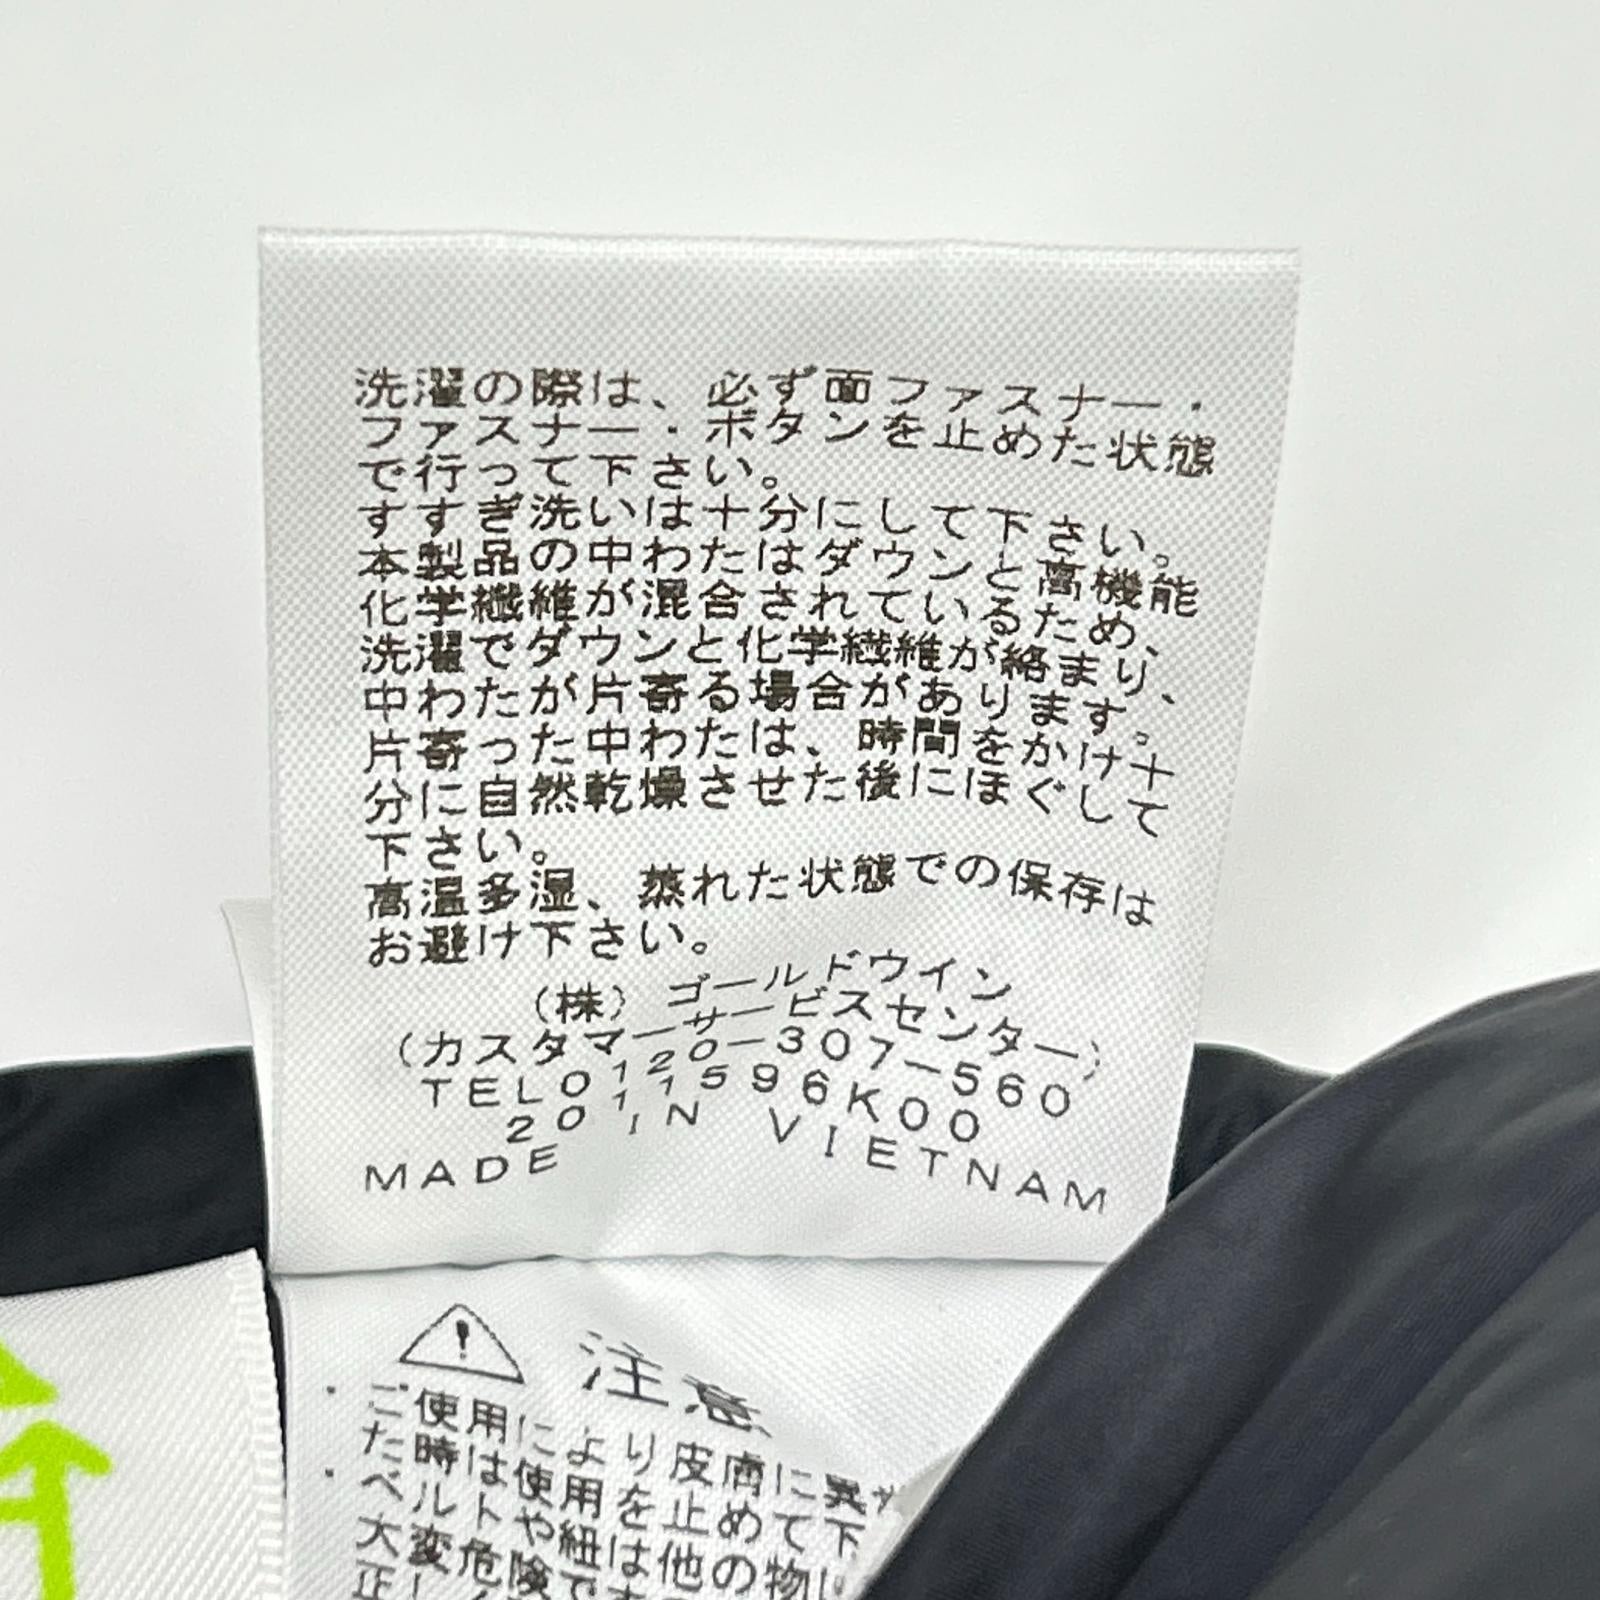 洗濯の際は、必ず面ファスナー・
ファスナー・ボタンを止めた状態
で行って下さい。
すすぎ洗いは十分にして下さい。
本製品の中わたはダウンと高機能
化学繊維が混合されているため、
洗濯でダウンと化学繊維が絡まり、
中わたが片寄る場合があります。
片寄った中わたは、時間をかけ十
分に自然乾燥させた後にほぐして
下さい。
高温多湿、蒸れた状態での保存は
お避け下さい。
(株) ゴールドウイン
(カスタマーサービスセンター)
TEL0120-307-560
2011596K00
MADE IN VIETNAM
注意
・ご使用により皮膚に異
た時は使用を止めて下
・ベルトや紐は他の物
大変危険で
正し